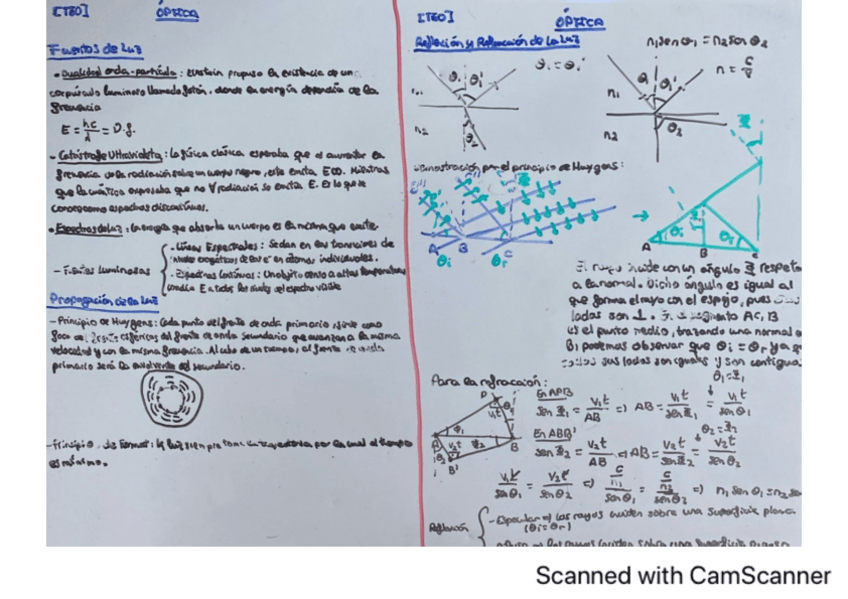 [TEO] ÓPTICA
Fuentes de Luz
• Dualidad onda-partícula: Einstein propuso la existencia de un
corpúsculo luminoso llamado fotón, donde su energía dependía de la
frecuencia
E = h.c/λ = D.f.
- Catástrofe Ultravioleta: La física clásica esperaba que al aumentar la
frecuencia de la radiación sobre un cuerpo negro, este emita E∞. Mientras
que la cuántica expresaba que no ∀ radiación se emitía E. Es lo que se
conoce como espectros discontinuos.
• Espectros de luz: La energía que absorbe un cuerpo es la misma que emite
- Fuentes luminosas
- Líneas Espectrales: Se dan en las transiciones de
niveles energéticos de los e⁻ en átomos individuales.
- Espectros Continuos: Un objeto denso a altas temperaturas
Propagación de la Luz
- Principio de Huygens: Cada punto del frente de onda primario, sirve como
foco de esféricos del frente de onda secundario que avanzan a la misma
velocidad y con la misma frecuencia. Al cabo de un tiempo, el frente
primario será la envolvente del secundario.
- Principio de Fermat: la luz siempre toma la trayectoria por la cual el tiempo
es mínimo.
[TEO] ÓPTICA
Reflexión y Refracción de la Luz
n₁ sen θ₁ = n₂ sen θ₂
θ₁ = θ₁'
n = c/v
n₁
n₂
θ₁ θ₁'
θ₂
n₁
n₂
θ₁ θ₁'
θ₂
Demostración por el principio de Huygens:
A B C
θi θr
A B C
θi θr
El rayo incide con un ángulo Φ respeto
a la normal. Dicho ángulo es igual al
que forma el rayo con el espejo, pues sus
lados son ⊥. En el segmento AC, B
es el punto medio, trazando una normal a
B, podemos observar que θi = θr ya que
todos sus lados son iguales y son contiguos
Para la refracción:
θ₁ = Φ₁
En APB
sen Φ₁ = v₁t/AB => AB = v₁t/sen Φ₁ = v₁t/sen θ₁
θ₂ = Φ₂
En ABB'
sen Φ₂ = v₂t/AB => AB = v₂t/sen Φ₂ = v₂t/sen θ₂
v₁t/sen θ₁ = v₂t/sen θ₂ => (c/n₁)/sen θ₁ = (c/n₂)/sen θ₂ => n₁ sen θ₁ = n₂ se
Reflexión
- Especular => Los rayos inciden sobre una superficie plana
(θi = θr)
Scanned with CamScanner